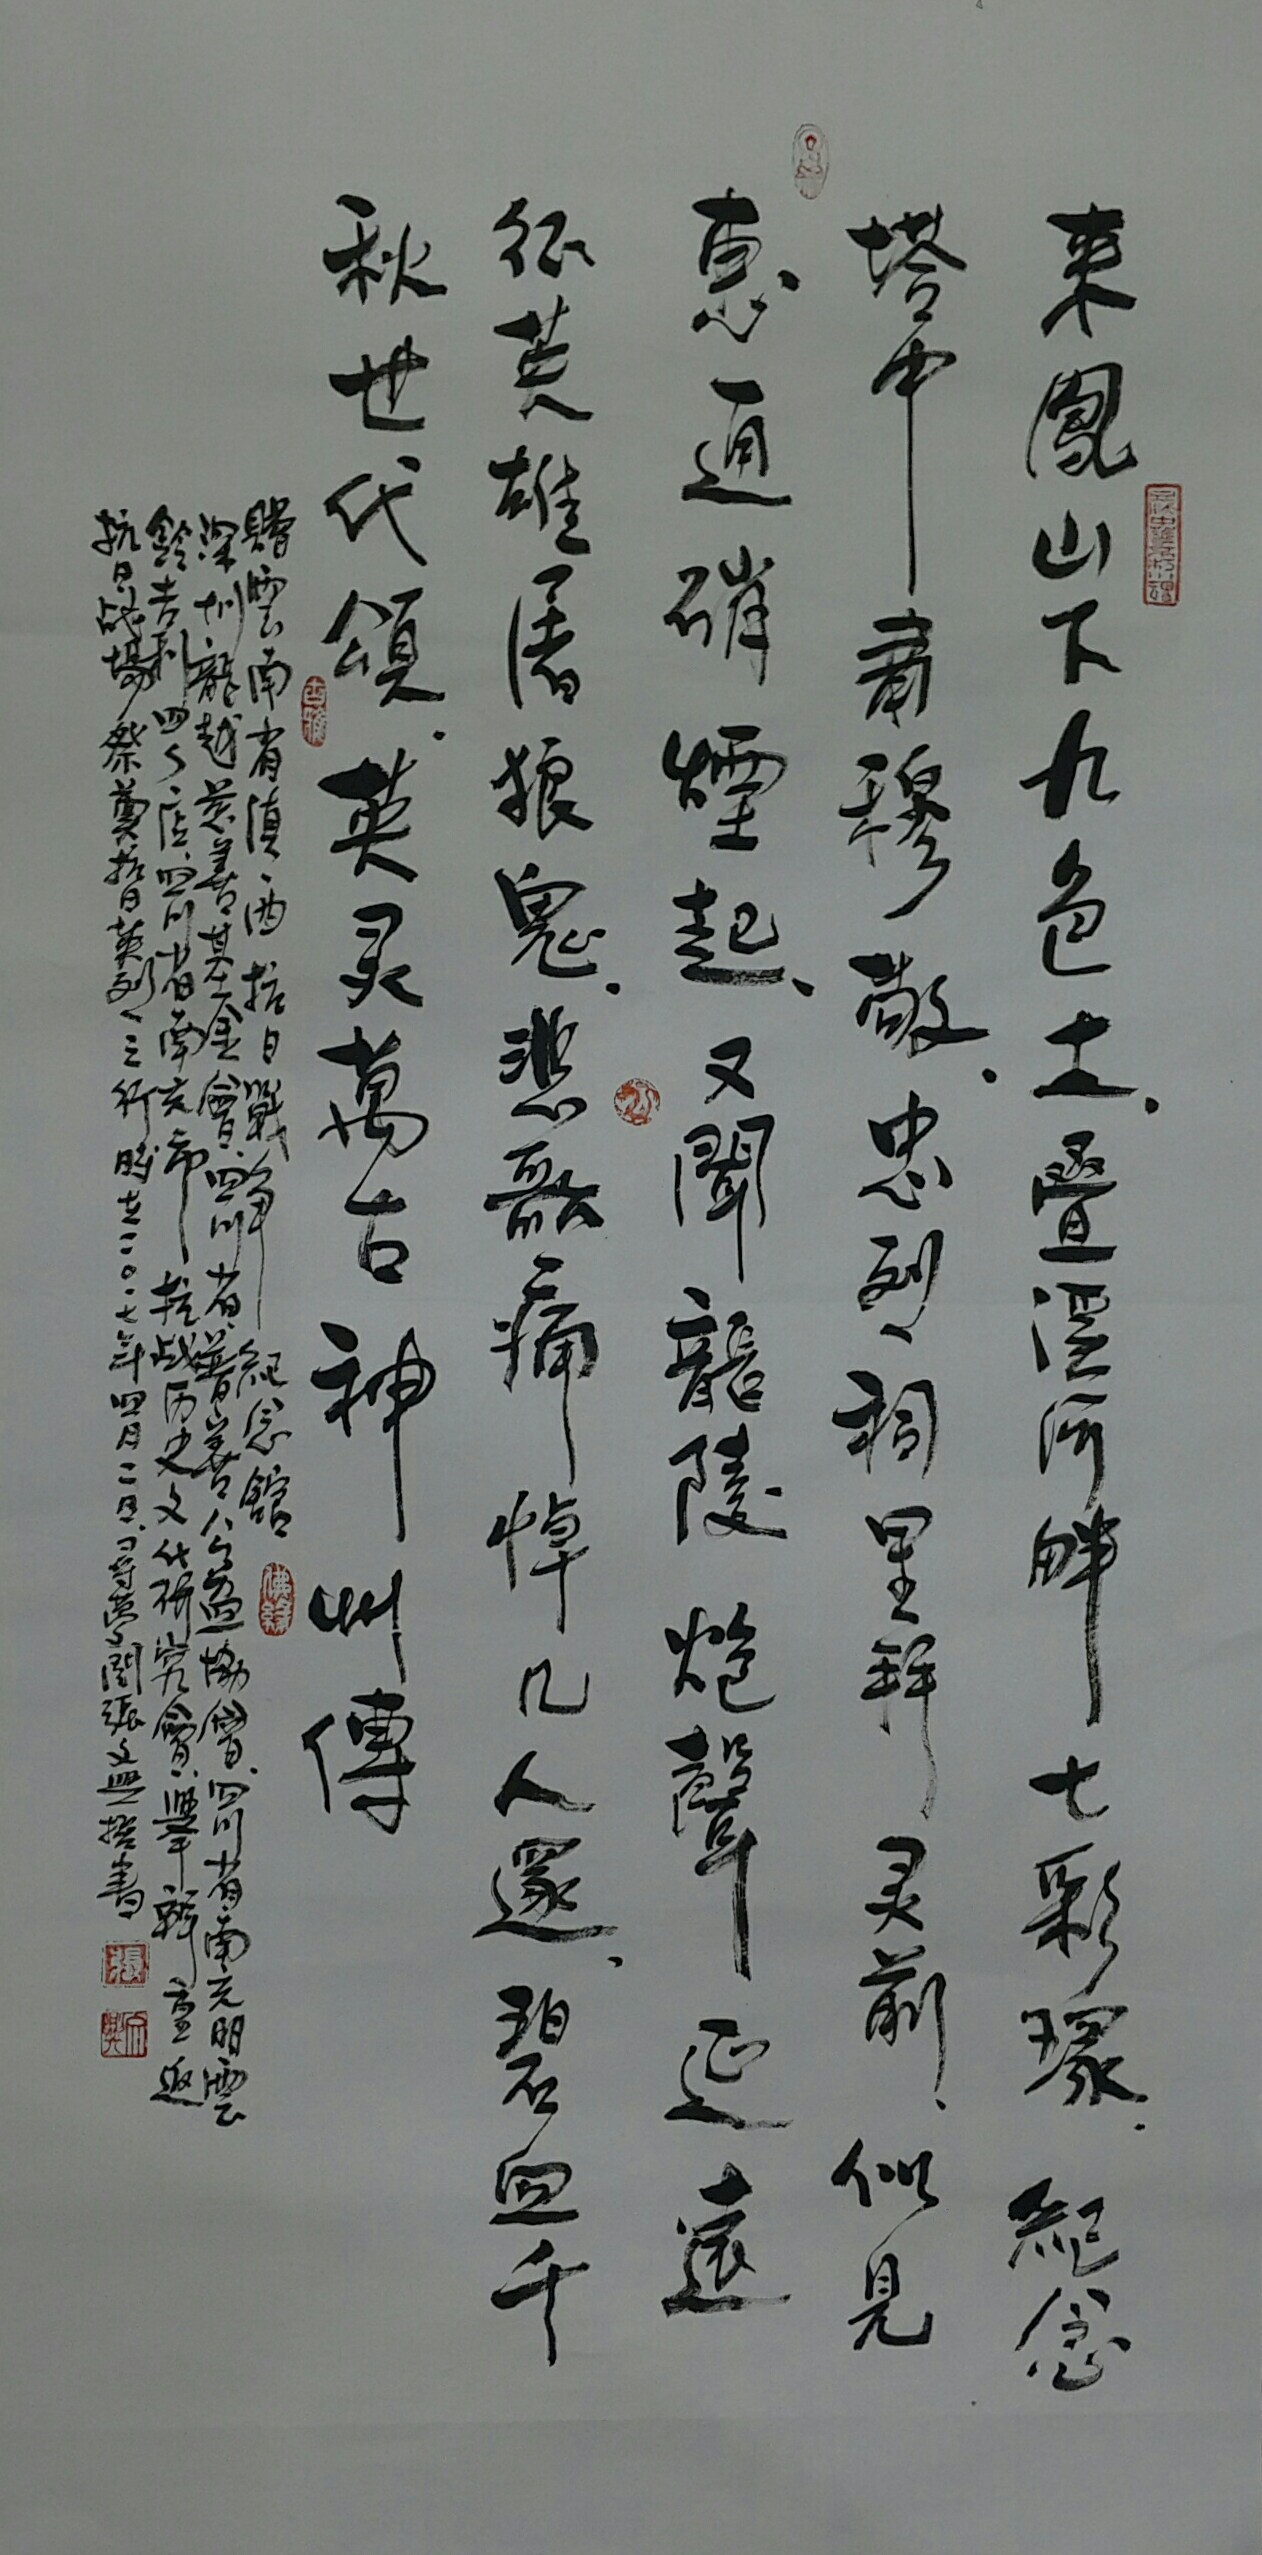 来鳳山下九色土.叠溪河畔七彩瑑.紀念
塔中肅穆敬.忠烈祠里拜灵前、似見
惠通硝煙起、又聞龍陵炮聲延遠
征英雄屠狼鬼.悲歌痛悼几人還、碧血千
秋世代頌.英灵萬古神州傳
贈雲南省滇西抗日戰爭紀念館
深圳龍越慈善基金會、四川省普善公益協會、四川省南充明雲
鈴吉利四S店、四川省南充市抗战历史文化研究會、舉辦重返
抗日战場祭奠抗日英烈之行時在二〇一七年四月二日、尋夢閣張文興拙書
佛緣